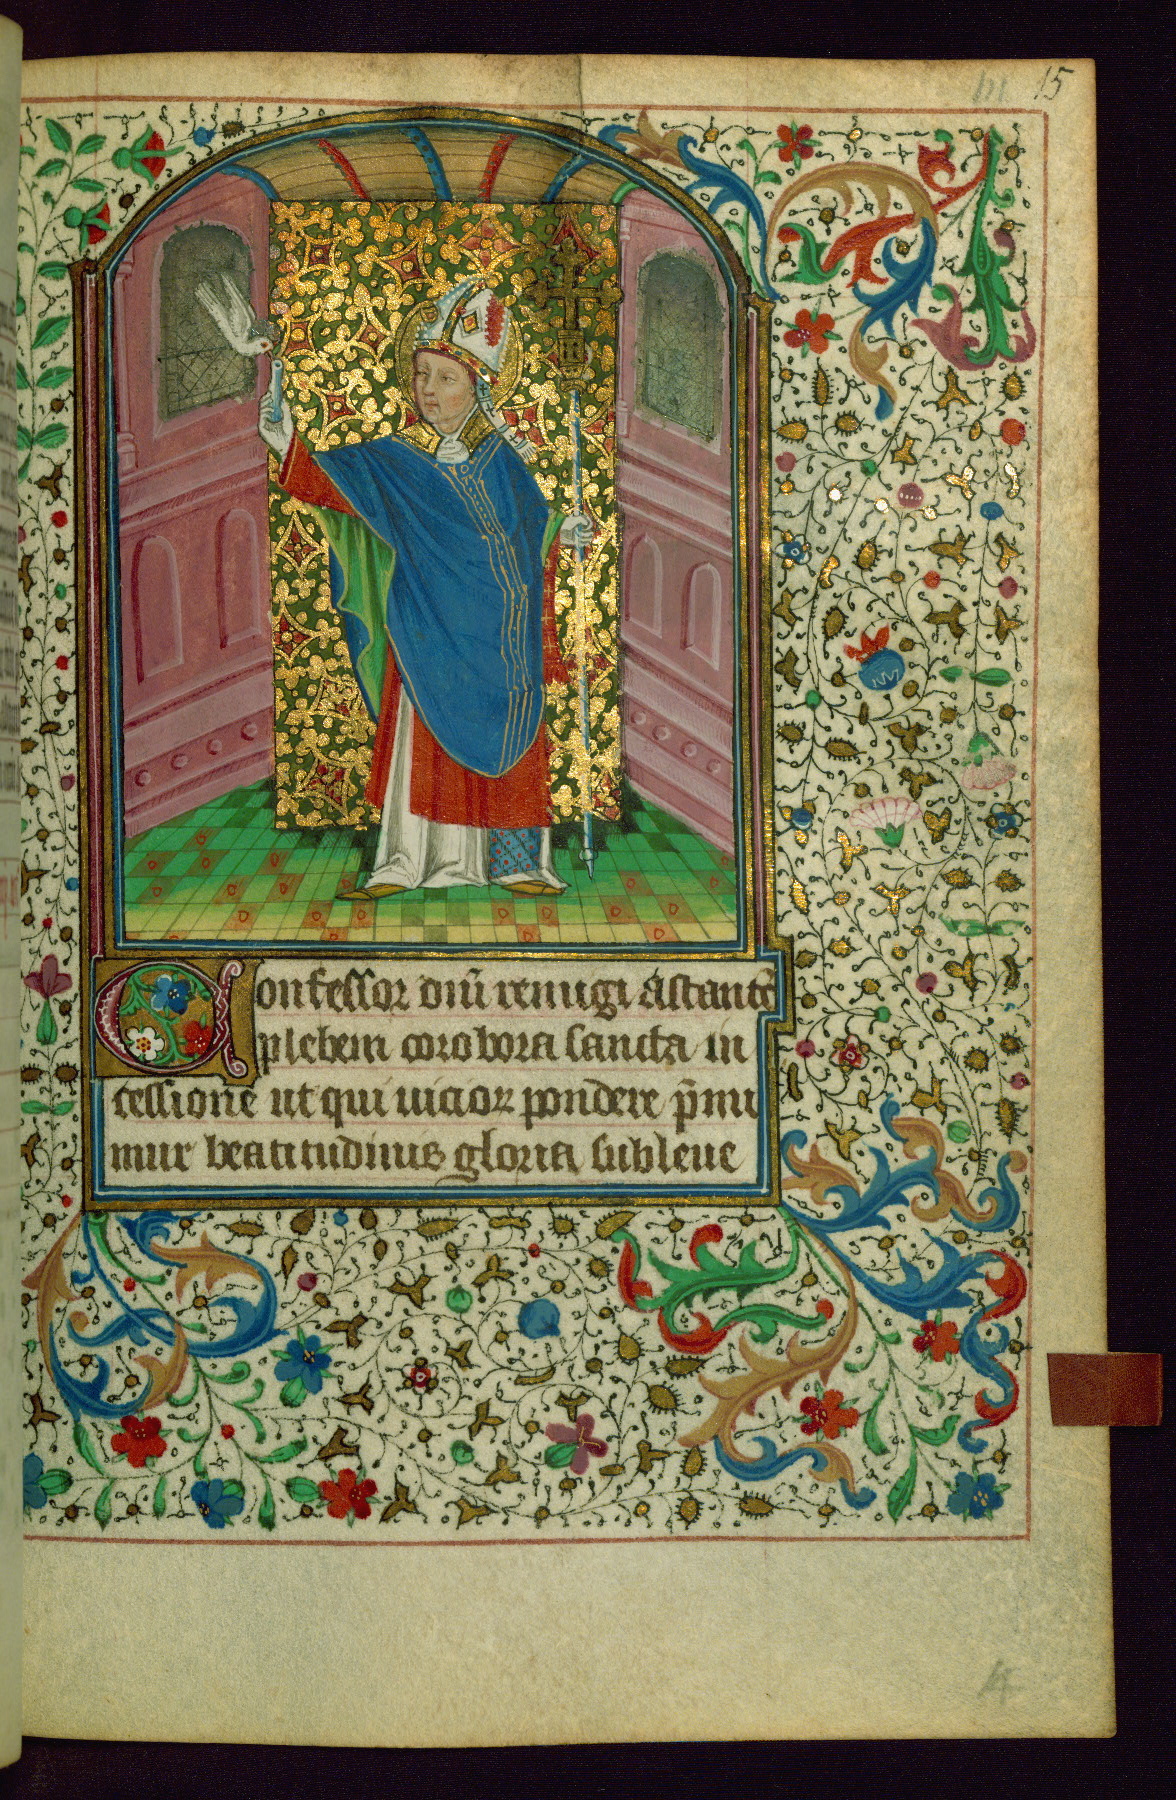 15
Confessor dñi remigi astantẽ
plebem corobora sancta in
cessione ut qui uicior pondere p̄mi
mur beatitudinis gloria subleue